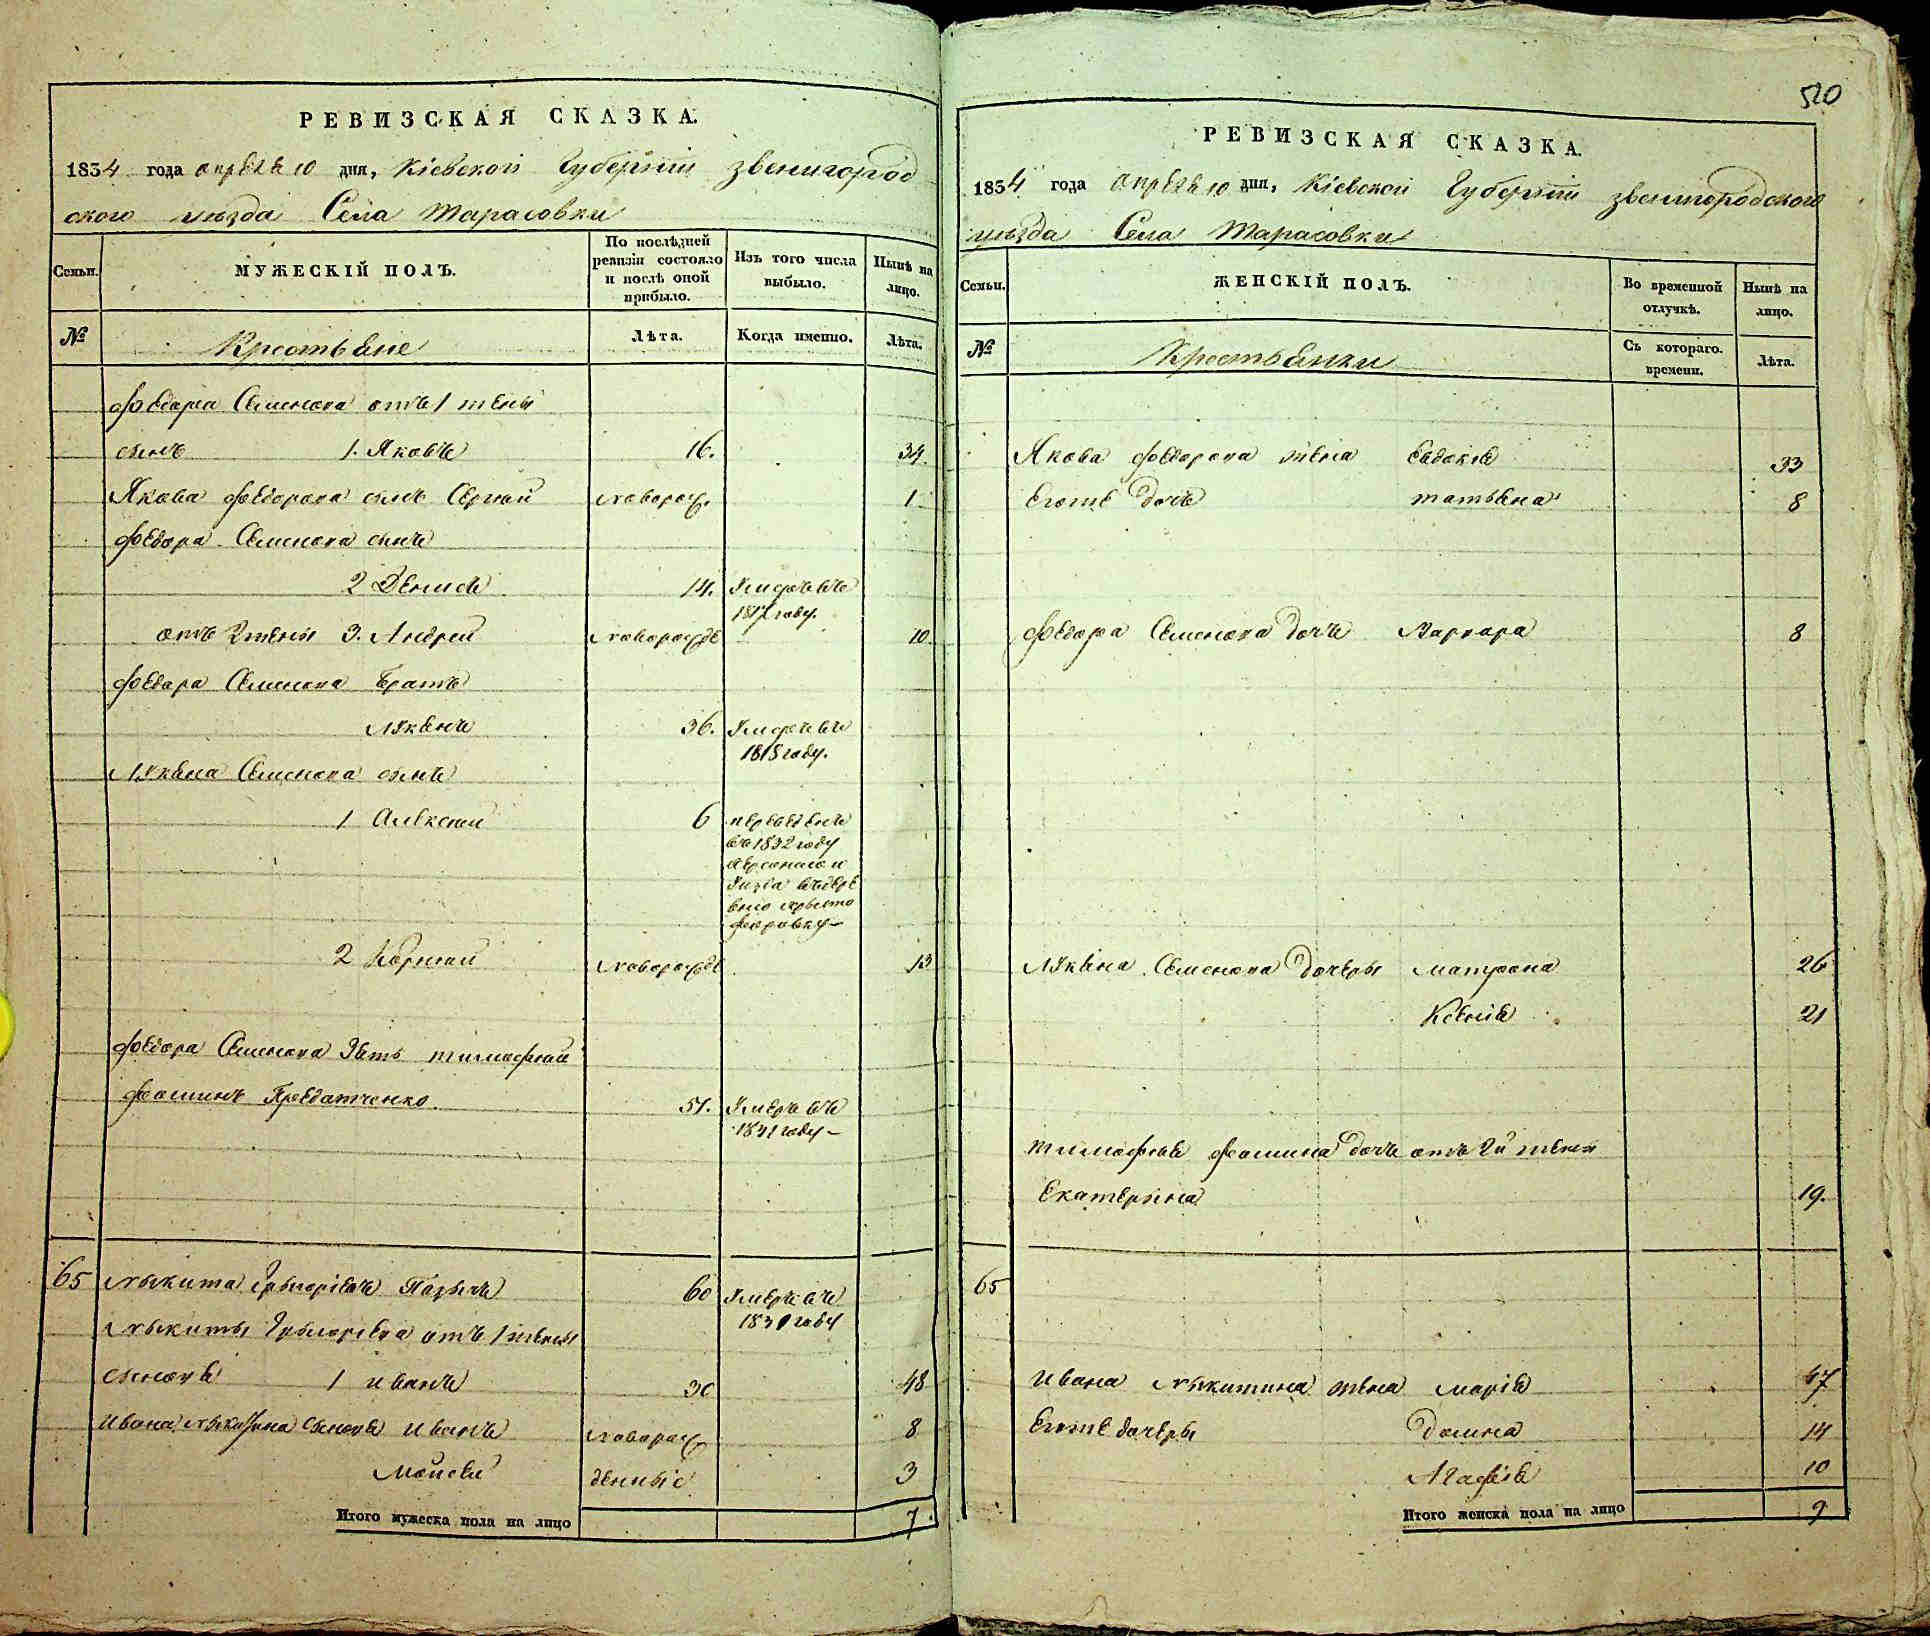 РЕВИЗСКАЯ СКАЗКА.
1834 года апреля 10 дня, Кіевской Губерніи звенигород
ского уѣзда Села Тарасовки
Семьи.
МУЖЕСКІЙ ПОЛЪ.
По послѣдней ревизіи состояло и послѣ оной прибыло.
Изъ того числа выбыло.
Нынѣ на лицо.
№
Крестьяне
Лѣта.
Когда именно.
Лѣта.
Федора Семенова отъ 1 жены
сынъ 1. Яковъ 16. 34.
Якова Федорова сынъ Сергей новорож. 1
Федора Семенова сынъ
2 Денисъ 14. Умеръ въ
1817 году.
отъ 2 жены 3. Андрей новорожде 10.
Федора Семенова братъ
Лукянъ 36. Умеръ въ
1818 году.
Лукяна Семенова сынъ
1 Алексей 6 переведенъ
въ 1832 году
Херсонского
уезда въ дере
вню Христо
форовку
2 Корней новорожде 13
Федора Семенова зять тимофей
Фоминъ 51. Умеръ въ
1831 году
65 Никита Григоріевъ 60 Умеръ въ
1831 году
Никиты Григоріева отъ 1 жены
сыновя 1 иванъ 30 48
ивана Никитина сыновя иванъ новорож 8
Моисей денные 3
Итого мужеска пола на лицо 7.
510
РЕВИЗСКАЯ СКАЗКА.
1834 года апреля 10 дня, Кіевской Губерніи звенигородского
уѣзда Села Тарасовки
Семьи.
ЖЕНСКІЙ ПОЛЪ.
Во временной отлучкѣ.
Нынѣ на лицо.
№
Крестьянки
Съ котораго времени.
Лѣта.
Якова Федорова жена Евдокія 33
Егоже дочь татьяна 8
Федора Семенова дочь Варвара 8
Лукяна Семенова дочери матрона 26
Ксенія 21
тимофея Фомина дочь отъ 2й жены
Екатерина 19.
65
ивана Никитина жена марія 47
Егоже дочери Домна 14
Агафія 10
Итого женска пола на лицо 9